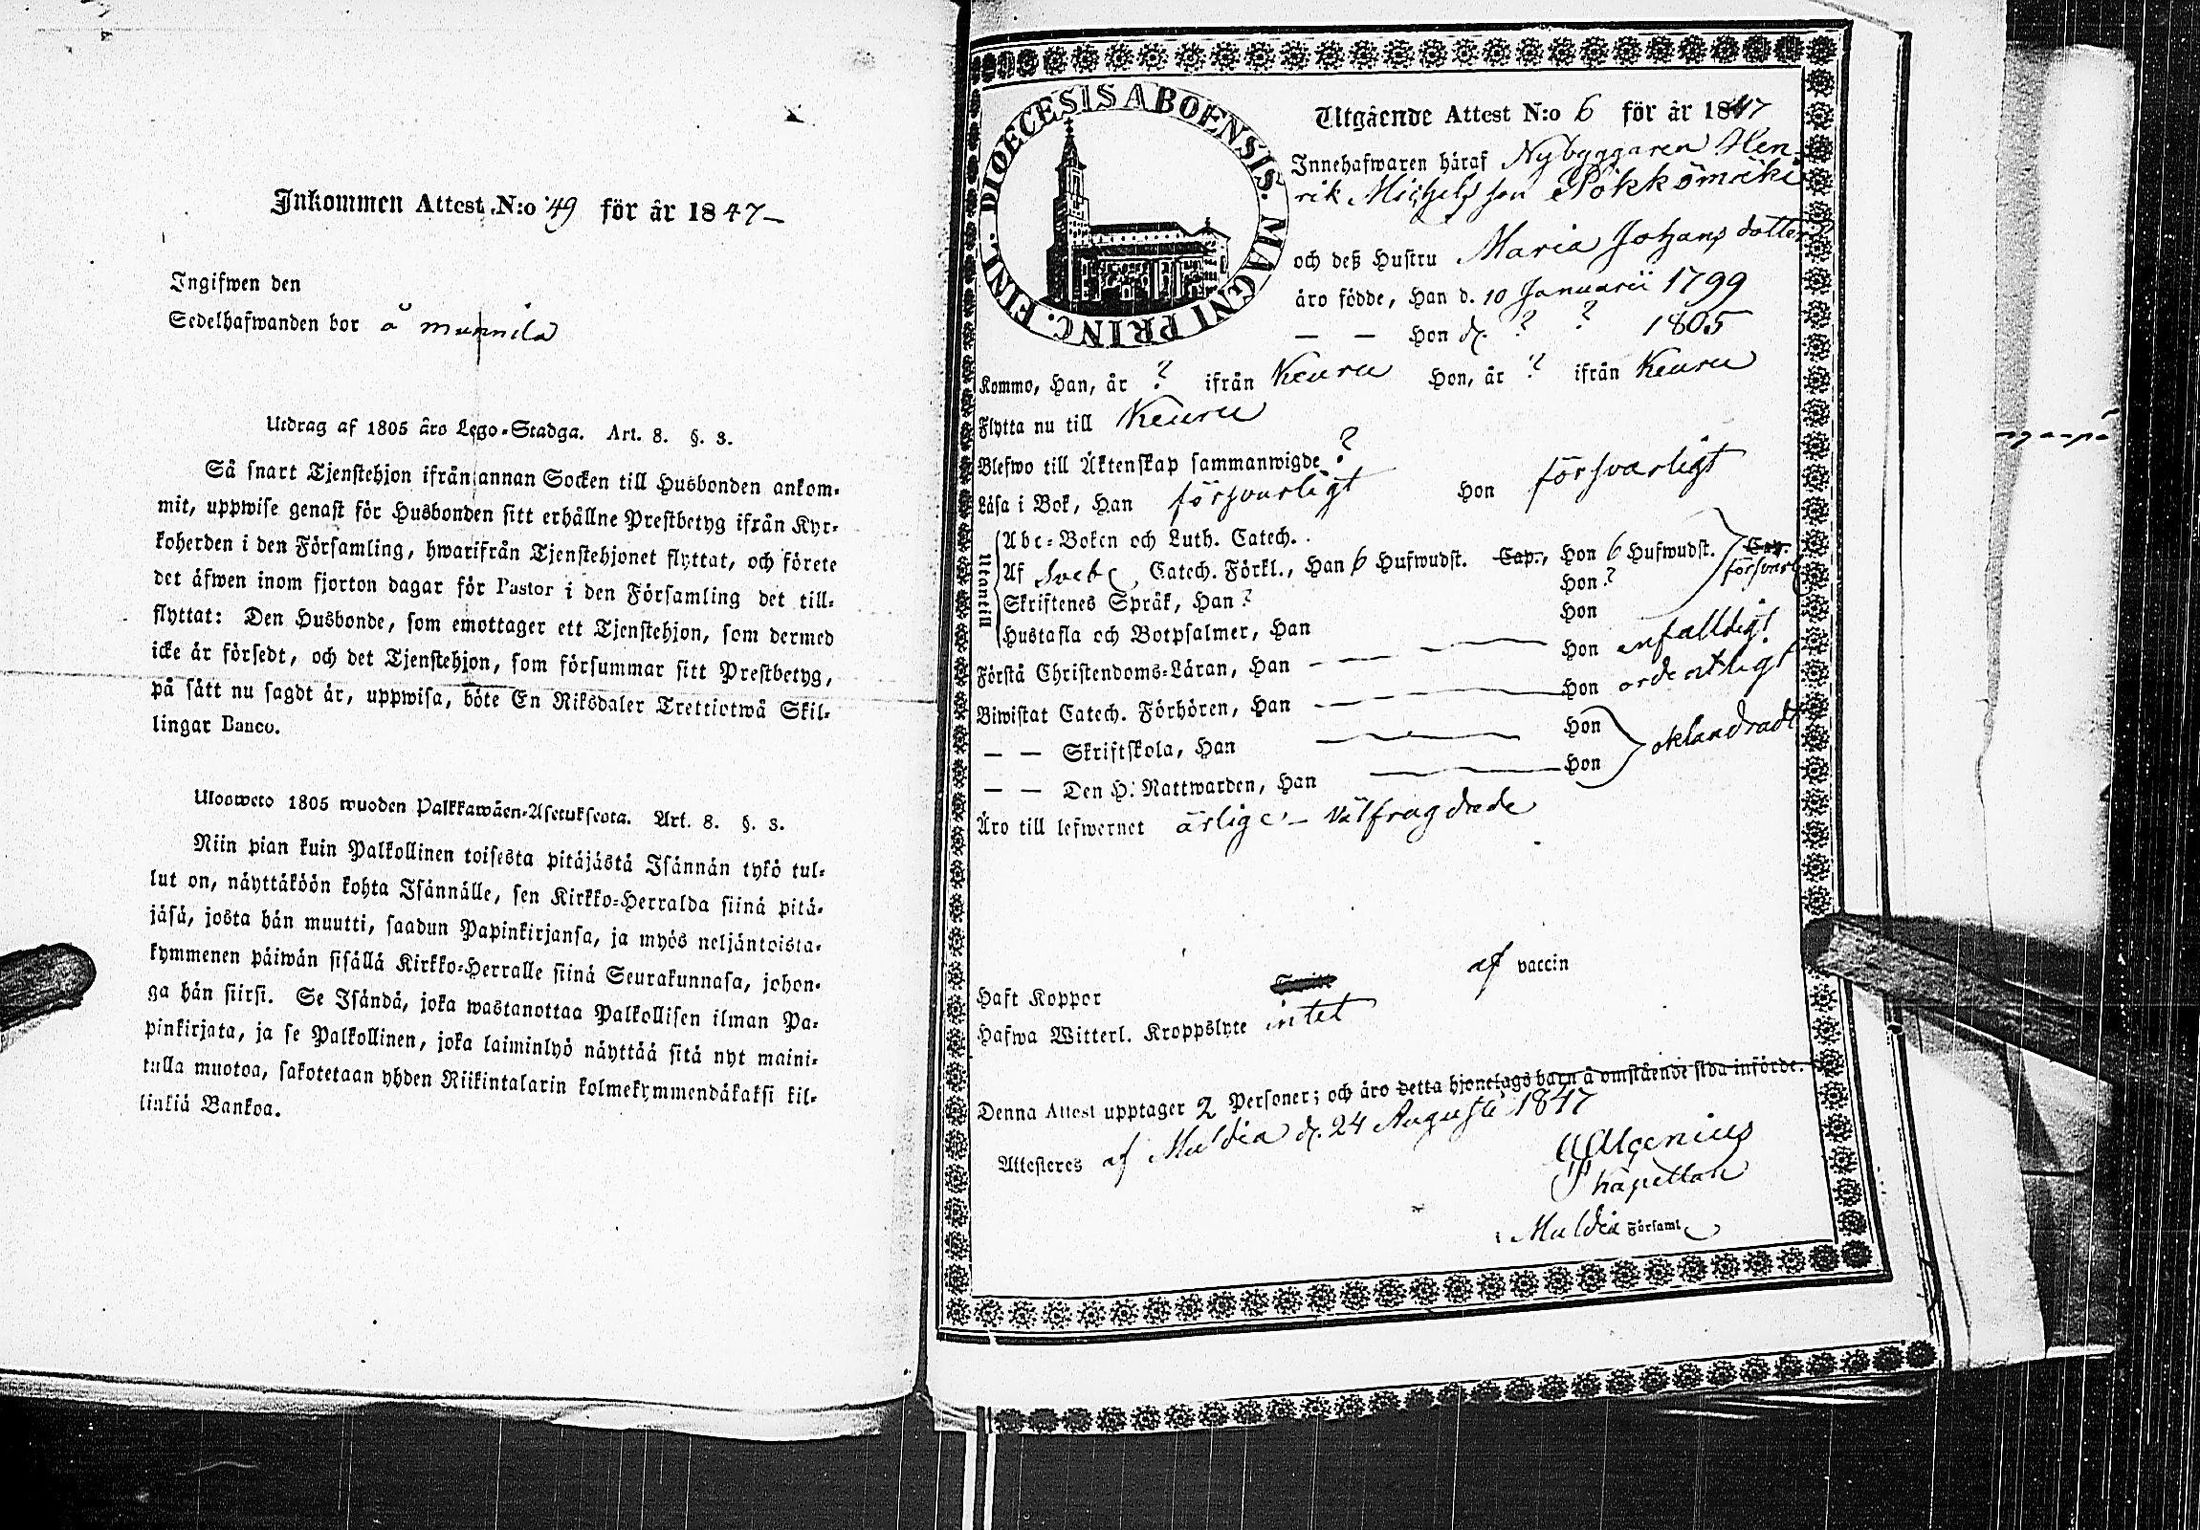 Inkommen Attest N:o 49 för år 1847 –
Ingifwen den
Sedelhafwanden bor å Munnila
Utdrag af 1805 års Lego-Stadga. Art. 8. §. 3.
Så snart Tjenstehjon ifrån annan Socken till Husbonden ankom-
mit, uppwise genast för Husbonden sitt erhållne Prestbetyg ifrån Kyr-
koherden i den Församling, hwarifrån Tjenstehjonet flyttat, och förete
det äfwen inom fjorton dagar för Pastor i den Församling det till-
flyttat: Den Husbonde, som emottager ett Tjenstehjon, som dermed
icke är försedt, och det Tjenstehjon, som försummar sitt Prestbetyg,
på sätt nu sagdt är, uppwisa, böte En Riksdaler Trettiotwå Skil-
lingar Banco.
Ulosweto 1805 wuoden Palkkawäen-Asetuksesta. Art. 8. §. 3.
Niin pian kuin Palkollinen toisesta pitäjästä Isännän tykö tul-
lut on, näyttäköön kohta Isännälle, sen Kirkko-Herralda siinä pitä-
jäsä, josta hän muutti, saadun Papinkirjansa, ja myös neljäntoista-
kymmenen päiwän sisällä Kirkko-Herralle siinä Seurakunnasa, johon-
ga hän siirsi. Se Isändä, joka wastanottaa Palkollisen ilman Pa-
pinkirjata, ja se Palkollinen, joka laiminlyö näyttää sitä nyt maini-
tulla muotoa, sakotetaan yhden Riikintalarin kolmekymmendäkaksi kil-
linkiä Bankoa.
DIOECESIS ABOENSIS. MAGNI PRINC. FINL.
Utgående Attest N:o 6 för år 1847
Innehafwaren häraf Nybyggaren Hen-
rik Michelsson Pökkömäki
och deß Hustru Maria Johansdotter
äro födde, Han d. 10 Januarii 1799
— — Hon d. ? ? 1805
Kommo, Han, år ? ifrån Keuru Hon, år ? ifrån Keuru
Flytta nu till Keuru
Blefwo till Äktenskap sammanwigde ?
Läsa i Bok, Han försvarligt Hon försvarligt
Utantill
Abc-Boken och Luth. Catech.
Af Sveb. Catech. Förkl., Han 6 Hufwudst. Cap., Hon 6 Hufwudst. Cap.
Skriftenes Språk, Han ? Hon ? försvarl.
Hustafla och Botpsalmer, Han Hon
Förstå Christendoms-Läran, Han — — — Hon enfaldigt
Biwistat Catech. Förhören, Han — — — Hon ordentligt
— — Skriftskola, Han — — — Hon
— — Den H. Nattwarden, Han — — Hon oklandradt
Äro till lefwernet ärlige – välfrägdade
Haft Koppor af vaccin
Hafwa Witterl. Kroppslyte intet
Denna Attest upptager 2 Personer; och äro detta hjonelags barn å omstående sida införde.
Attesteres af Muldia d. 24 Augusti 1847
Kapellan
i Muldia Församl.